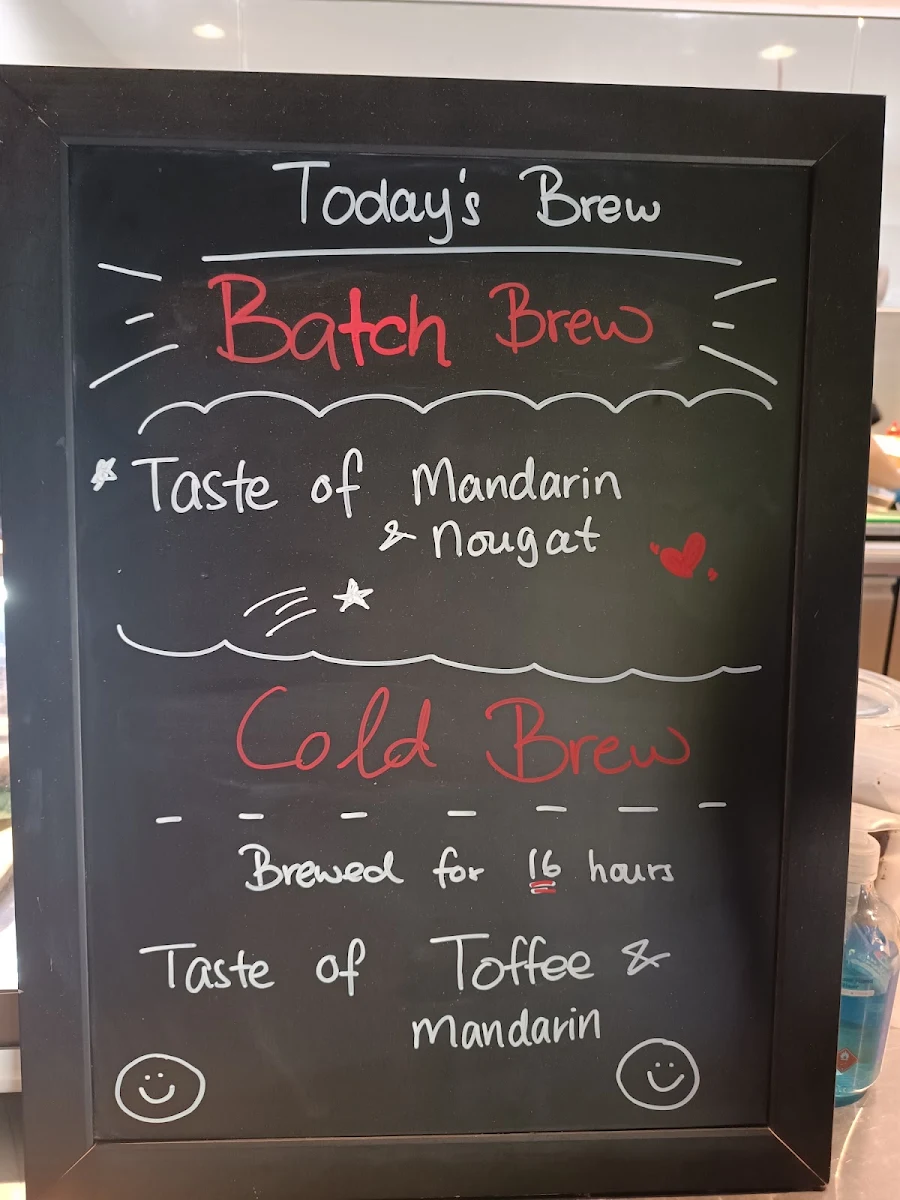 Today's Brew
Batch Brew
Taste of Mandarin
& Nougat
Cold Brew
Brewed for 16 hours
Taste of Toffee &
Mandarin